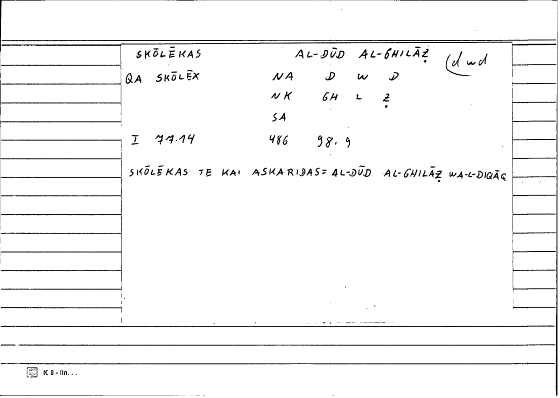 SKŌLĒKAS AL-DŪD AL-GHILĀẒ (dwd
QA SKŌLĒX NA D W D
NK GH L Ẓ
SA
I 77.14 486 98.9
SKŌLĒKAS TE KAI ASKARIDAS = AL-DŪD AL-GHILĀẒ WA-L-DIQĀQ